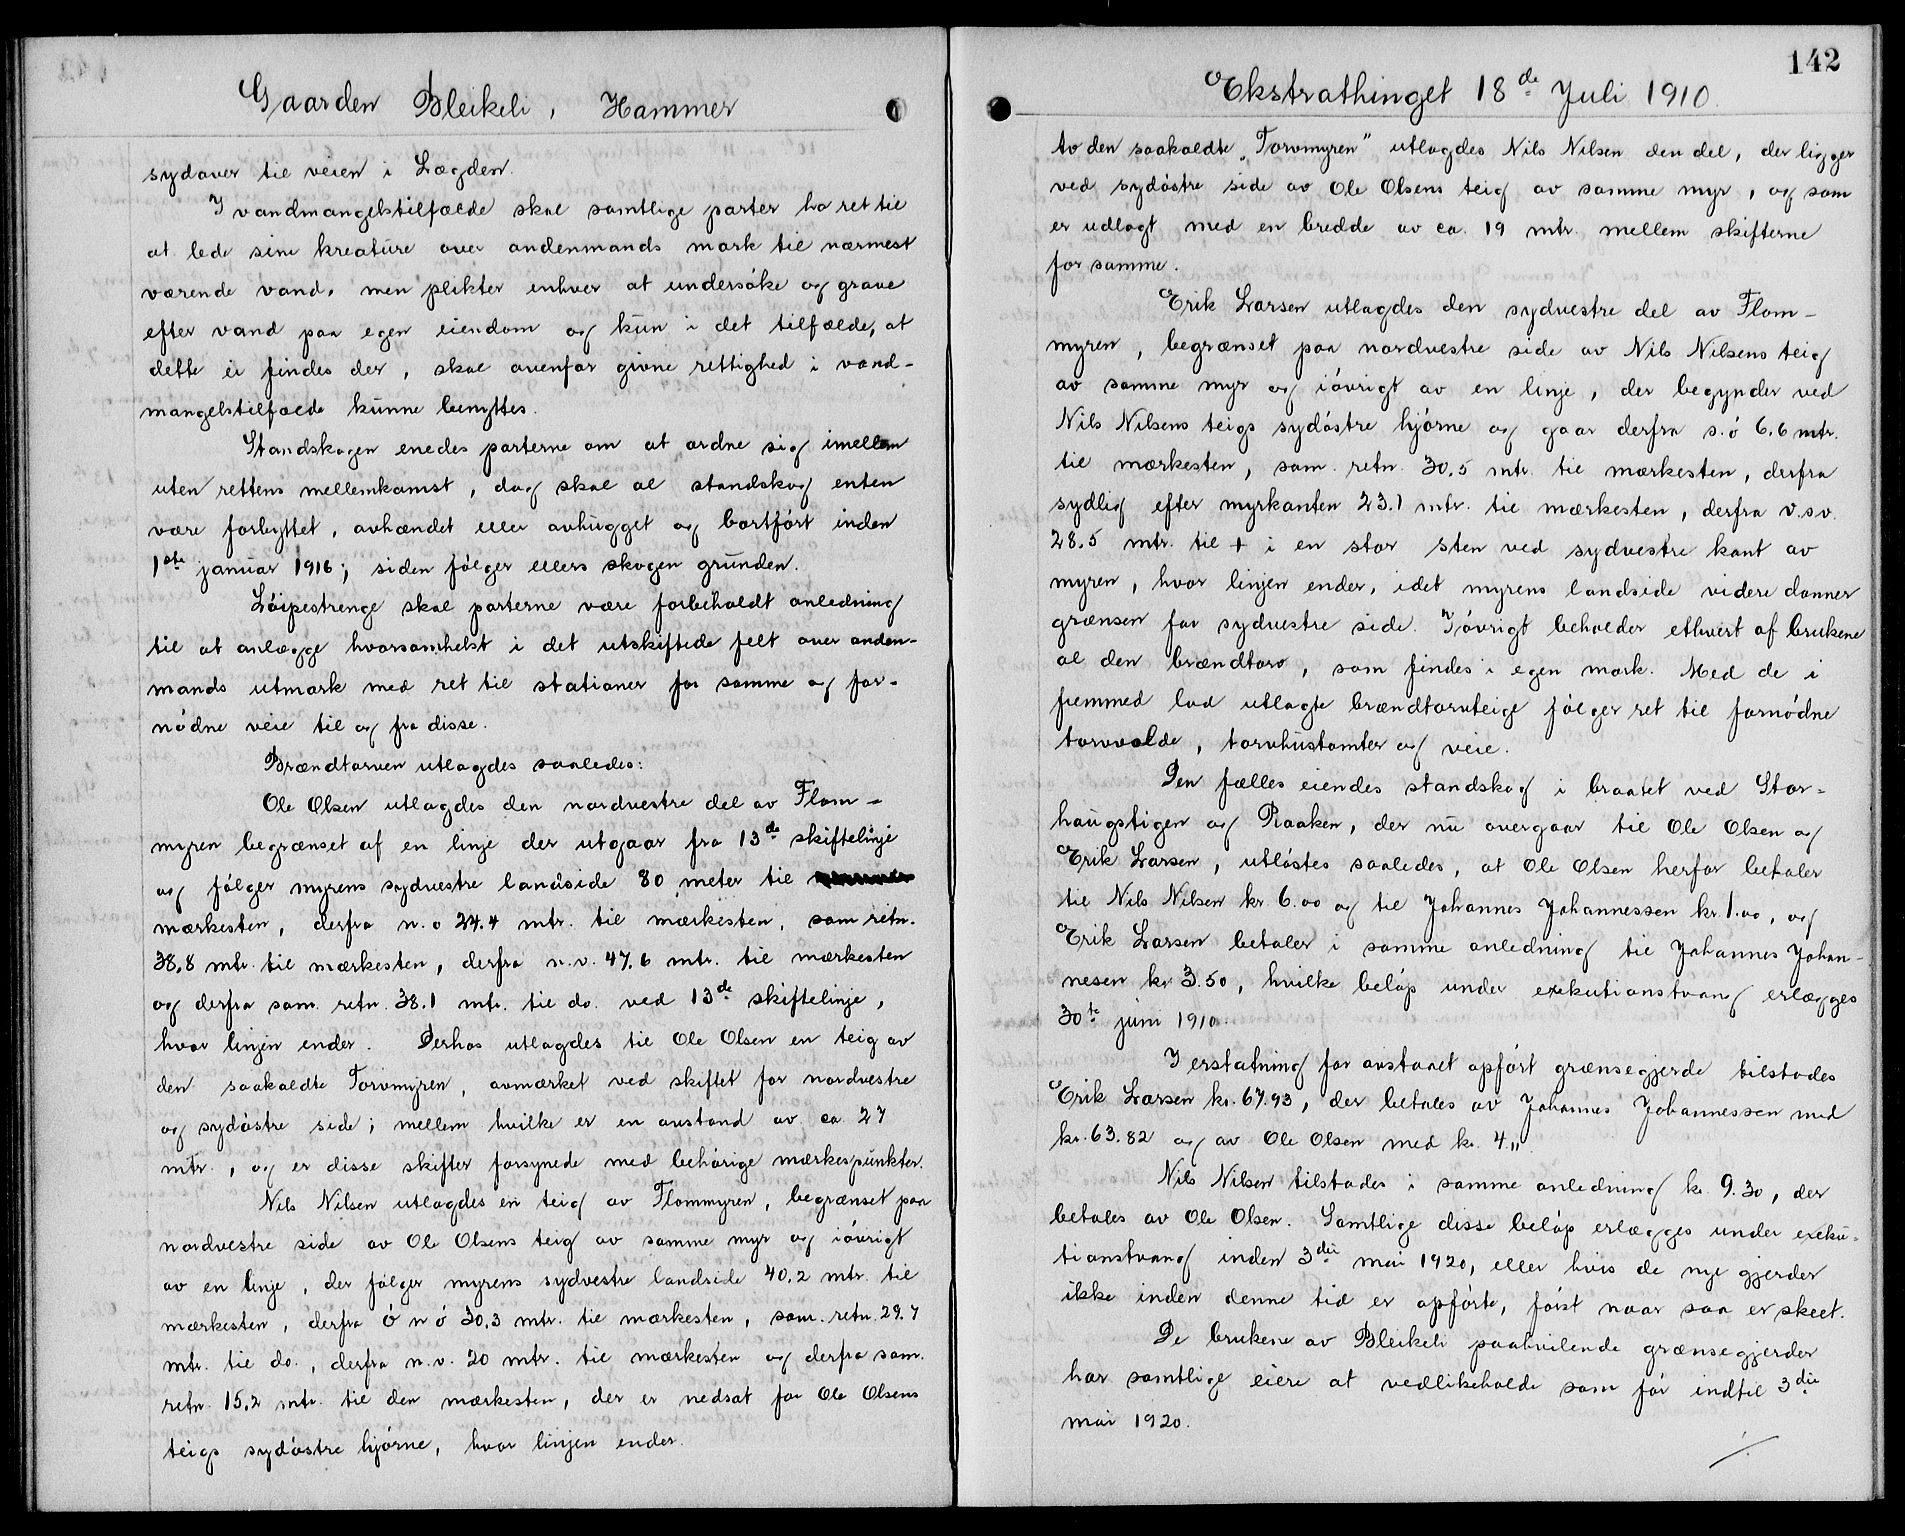 Gaarden Bleikeli, Hammer
sydover til veien i Lægden.
I vandmangelstilfælde skal samtlige parter ha ret til
at lede sine kreature over andenmands mark til nærmest
værende vand, men plikter enhver at undersøke og grave
efter vand paa egen eiendom og kun i det tilfælde, at
dette ei findes der, skal ovenfor givne rettighed i vand-
mangelstilfælde kunne benyttes.
Standskogen enedes parterne om at ordne sig imellem
uten rettens mellemkomst, dog skal al standskog enten
være forbyttet, avhændet eller avhugget og bortført inden
1ste januar 1916; siden følger ellers skogen grunden.
Løipestrenge skal parterne være forbeholdt anledning
til at anlægge hvorsomhelst i det utskiftede felt over anden-
mands utmark med ret til stationer for samme og for-
nødne veie til og fra disse.
Brændtorven utlagdes saaledes:
Ole Olsen utlagdes den nordvestre del av Flom-
myren begrænset af en linje der utgaar fra 13de skiftelinje
og følger myrens sydvestre landside 80 meter til
mærkesten, derfra n.o 24.4 mtr. til mærkesten, sam retn.
38.8 mtr. til mærkesten, derfra n.v. 47.6 mtr. til mærkesten
og derfra sam. retn. 38.1 mtr. til do. ved 13de skiftelinje,
hvor linjen ender. Derhos utlagdes til Ole Olsen en teig av
den saakaldte Torvmyren, avmærket ved skiftet for nordvestre
og sydøstre side; mellem hvilke er en avstand av ca. 27
mtr., og er disse skifter forsynede med behørige mærkespunkter.
Nils Nilsen utlagdes en teig av Flommyren, begrænset paa
nordvestre side av Ole Olsens teig av samme myr og iøvrigt
av en linje, der følger myrens sydvestre landside 40.2 mtr. til
mærkesten, derfra ø n ø 30.3 mtr. til mærkesten, sam. retn. 29.7
mtr. til do., derfra n.v. 20 mtr. til mærkesten og derfra sam.
retn. 15.2 mtr. til den mærkesten, der er nedsat for Ole Olsens
teigs sydøstre hjørne, hvor linjen ender.
142
Ekstrathinget 18de Juli 1910.
Av den saakaldte „Torvmyren” utlagdes Nils Nilsen den del, der ligger
ved sydøstre side av Ole Olsens teig av samme myr, og som
er udlagt med en bredde av ca. 19 mtr. mellem skifterne
for samme.
Erik Larsen utlagdes den sydvestre del av Flom-
myren, begrænset paa nordvestre side av Nils Nilsens teig
av samme myr og iøvrigt av en linje, der begynder ved
Nils Nilsens teigs sydøstre hjørne og gaar derfra s.ø 6.6 mtr.
til mærkesten, sam. retn. 30.5 mtr. til mærkesten, derfra
sydlig efter myrkanten 23.1 mtr. til mærkesten, derfra v.s.v.
28.5 mtr. til + i en stor sten ved sydvestre kant av
myren, hvor linjen ender, idet myrens landside videre danner
grænsen for sydvestre side. Iøvrigt beholder ethvert af brukene
al den brændtorv, som findes i egen mark. Med de i
fremmed lod utlagte brændtorvteige følger ret til fornødne
torvvolde, torvhustomter og veie.
Den fælles eiendes standskog i braatet ved Stor-
haugstigen og Raaken, der nu overgaar til Ole Olsen og
Erik Larsen, utløstes saaledes, at Ole Olsen herfor betaler
til Nils Nilsen kr. 6.00 og til Johannes Johannessen kr. 1.00, og
Erik Larsen betaler i samme anledning til Johannes Johan-
nesen kr 3.50, hvilke beløp under exekutionstvang erlægges
30te juni 1910.
I erstatning for avstaaet opført grænsegjerde tilstodes
Erik Larsen kr. 67.93, der betales av Johannes Johannessen med
kr. 63.82 og av Ole Olsen med kr. 4.11.
Nils Nilsen tilstodes i samme anledning kr. 9.30, der
betales av Ole Olsen. Samtlige disse beløp erlægges under exeku-
tionstvang inden 3die mai 1920, eller hvis de nye gjerder
ikke inden denne tid er opførte, først naar saa er skeet.
De brukene av Bleikeli paahvilende grænsegjerder
har samtlige eiere at vedlikeholde som før indtil 3die
mai 1920.